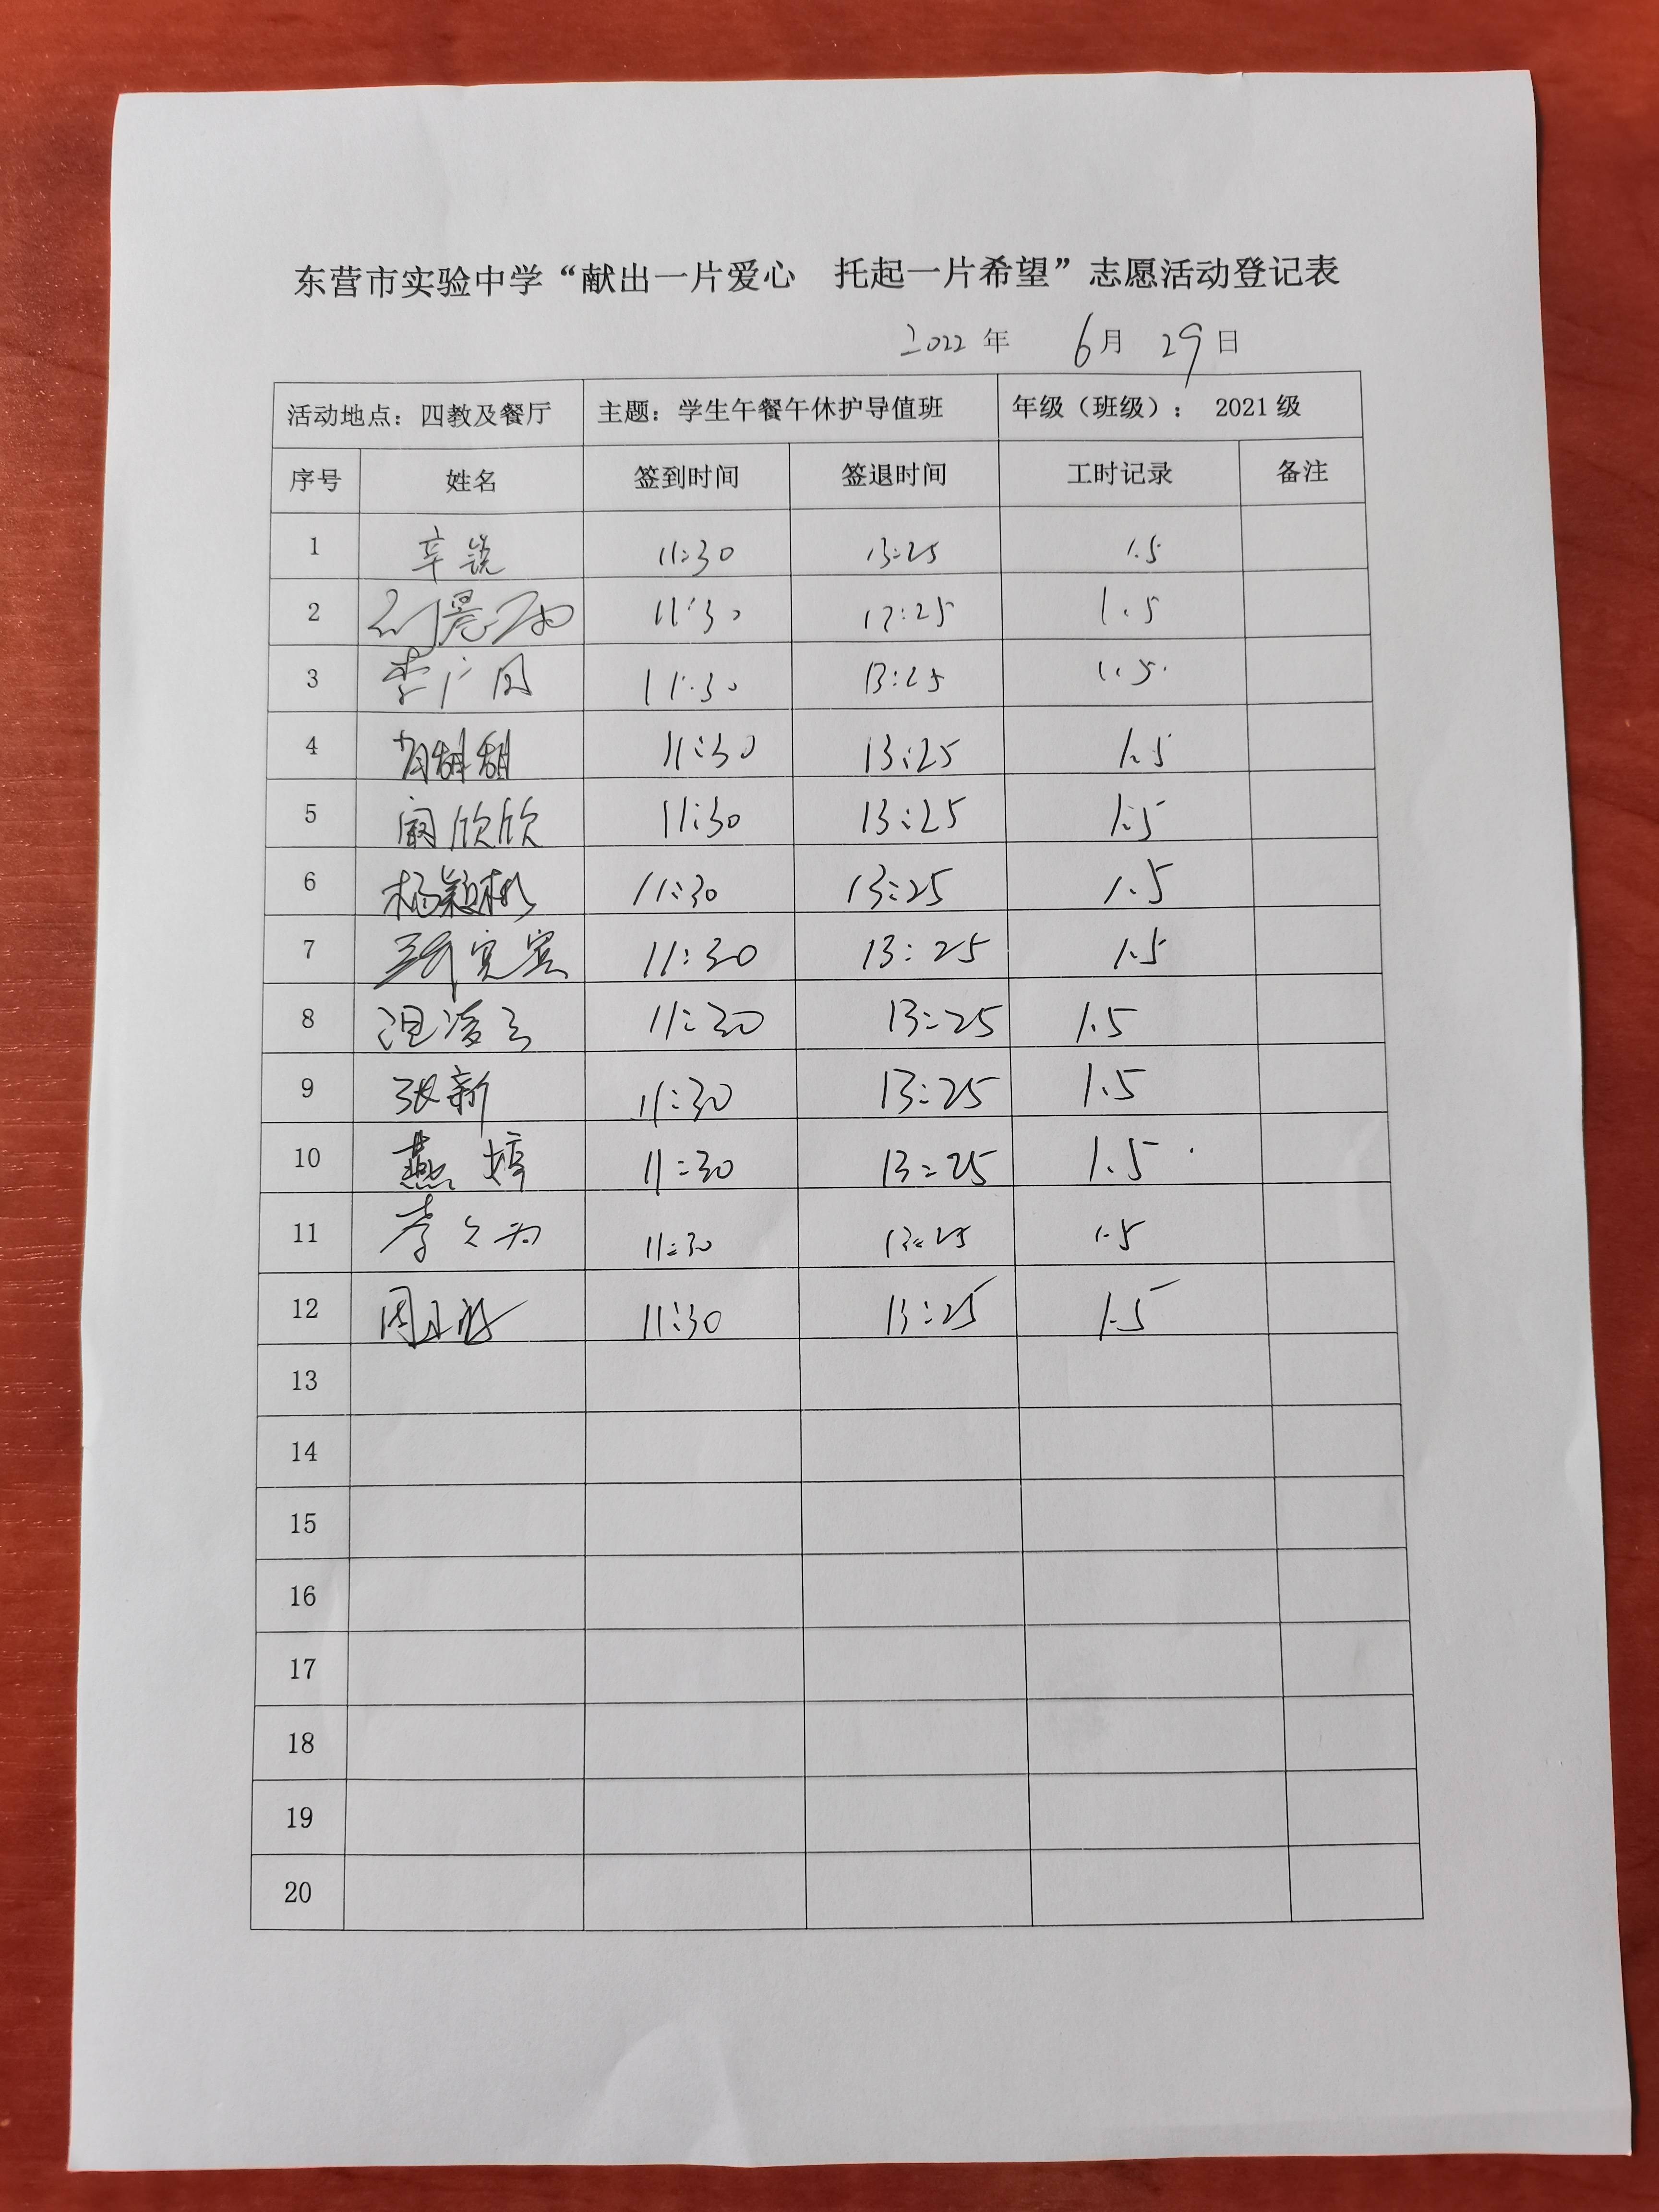 东营市实验中学“献出一片爱心 托起一片希望”志愿活动登记表
2022 年 6 月 29 日
活动地点：四教及餐厅 主题：学生午餐午休护导值班 年级（班级）： 2021 级
序号 姓名 签到时间 签退时间 工时记录 备注
1 辛锐 11:30 13:25 1.5
2 11:30 13:25 1.5
3 李广 11:30 13:25 1.5
4 11:30 13:25 1.5
5 阚欣欣 11:30 13:25 1.5
6 杨颖 11:30 13:25 1.5
7 11:30 13:25 1.5
8 凌云 11:30 13:25 1.5
9 张新 11:30 13:25 1.5
10 燕婷 11:30 13:25 1.5
11 李 11:30 13:25 1.5
12 周 11:30 13:25 1.5
13
14
15
16
17
18
19
20